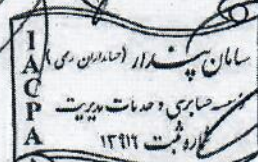 IACPA
سامان پندار (حسابداران رسمی)
موسسه حسابرسی و خدمات مدیریت
شماره ثبت ۱۳۹۱۲